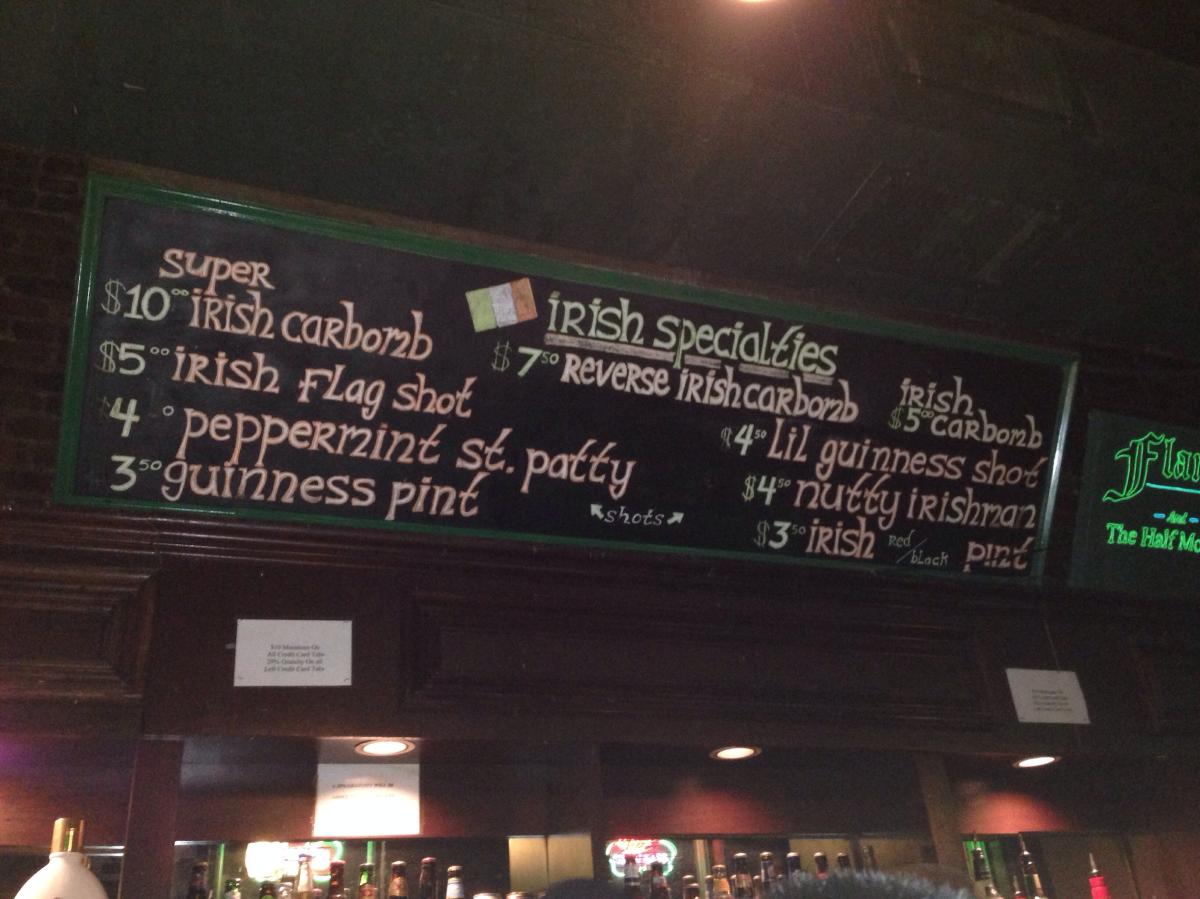 Super
$10⁰⁰ Irish carbomb
$5⁰⁰ Irish Flag shot
4 ⁰ peppermint st. patty
3⁵⁰ guinness pint
Irish specialties
$7⁵⁰ Reverse Irish carbomb
Irish
$5⁰⁰ carbomb
$4⁵⁰ Lil guinness shot
$4⁵⁰ nutty irishman
shots
$3⁵⁰ Irish red/black pint
Flan
And
The Half Mo
$10 Minimum On
All Credit Card Tabs
20% Gratuity On all
Left Credit Card Tabs